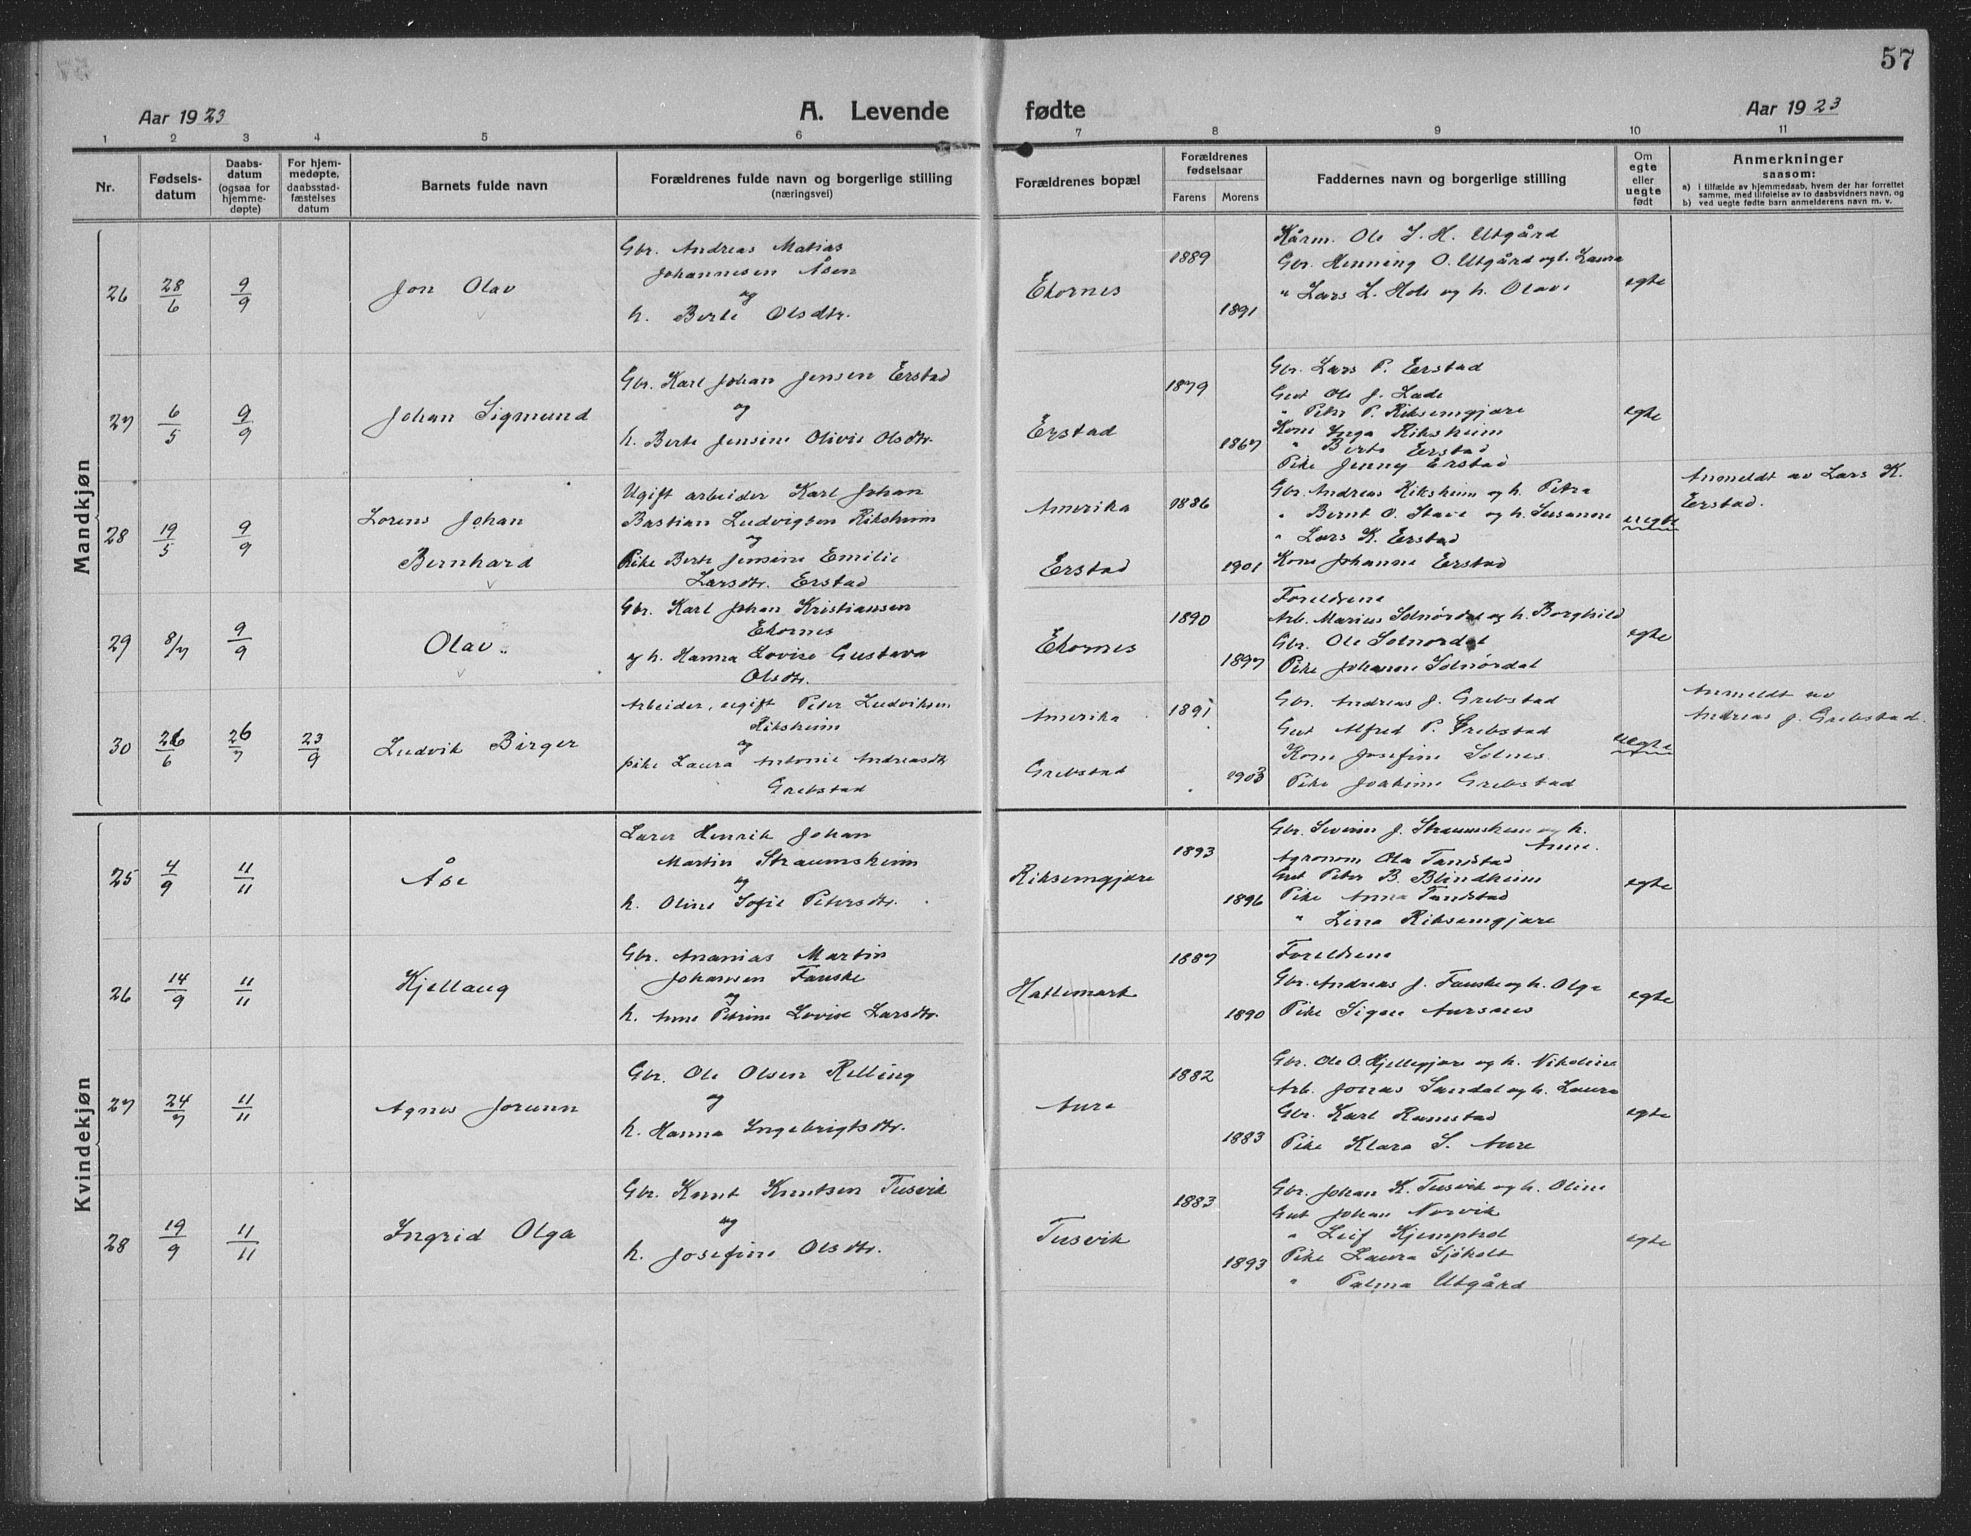 57
Aar 1923
A. Levende fødte
Aar 1923
1 2 3 4 5 6 7 8 9 10 11
Nr.
Fødsels-
datum
Daabs-
datum
(ogsaa for
hjemme-
døpte)
For hjem-
medøpte,
daabsstad-
fæstelses
datum
Barnets fulde navn
Forældrenes fulde navn og borgerlige stilling
(næringsvei)
Forældrenes bopæl
Forældrenes
fødselsaar
Farens Morens
Faddernes navn og borgerlige stilling
Om
egte
eller
uegte
født
Anmerkninger
saasom:
a) i tilfælde av hjemmedaab, hvem der har forrettet
samme, med tilføielse av to daabsvidners navn, og
b) ved uegte fødte barn anmelderens navn m. v.
Mandkjøn
26
28/6
9/9
Jon Olav
Gbr. Andreas Matias
Johannesen Åsen
og
h. Berte Olsdtr.
Ekornes
1889
1891
Kårm. Ole L. H. Utgård
Gbr. Henning O. Utgård og h. Laura
" Lars L. Hole og h. Olave
egte
27
6/5
9/9
Johan Sigmund
Gbr. Karl Johan Jensen Erstad
og
h. Berte Jensine Olivie Olsdtr.
Erstad
1879
1867
Gbr. Lars P. Erstad
Gut Ole J. Lade
" Peter P. Riksemgjære
Kone Inga Riksheim
" Berte Erstad
Pike Jenny Erstad
egte
28
19/5
9/9
Lorens Johan
Bernhard
Ugift arbeider Karl Johan
Bastian Ludvigsen Riksheim
og
Pike Berte Jensine Emilie
Larsdtr. Erstad
Amerika
Erstad
1886
1901
Gbr. Andreas Riksheim og h. Petra
" Bernt O. Stave og h. Susanne
" Lars K. Erstad
Kone Johanne Erstad
uegte
Anmeldt av Lars K.
Erstad.
29
8/7
9/9
Olav
Gbr. Karl Johan Kristiansen
Ekornes
og h. Hanna Lovise Gustava
Olsdtr.
Ekornes
1890
1897
Foreldrene
Arb. Marius Solnørdal og h. Borghild
Gbr. Ole Solnørdal
Pike Johanne Solnørdal
egte
30
26/6
26/7
23/9
Ludvik Birger
Arbeider, ugift Peter Ludviksen
Riksheim
og
pike Laura Antonie Andreasdtr.
Grebstad
Amerika
Grebstad
1891
1903
Gbr. Andreas J. Grebstad
Gut Alfred P. Grebstad
Kone Josefine Solnes
Pike Joakime Grebstad
uegte
Anmeldt av
Andreas J. Grebstad.
Kvindekjøn
25
4/9
11/11
Åse
Lærer Henrik Johan
Martin Straumsheim
og
h. Oline Sofie Petersdtr.
Riksemgjære
1893
1896
Gbr. Severin J. Straumsheim og h.
Anne.
Agronom Ola Tandstad
Gut Peter B. Blindheim
Pike Anna Tandstad
" Lina Riksemgjære
egte
26
14/9
11/11
Kjellaug
Gbr. Ananias Martin
Johansen Fauske
og
h. Anne Petrine Lovise Larsdtr.
Hattemark
1887
1890
Foreldrene
Gbr. Andreas J. Fauske og h. Olga
Pike Signe Aursnes
egte
27
24/7
11/11
Agnes Jorunn
Gbr. Ole Olsen Relling
og
h. Hanna Ingebrigtsdtr.
Aure
1882
1883
Gbr. Ole O. Hjellegjære og h. Nikoline
Arb. Jonas Sandal og h. Laura
Gbr. Karl Ramstad
Pike Klara S. Aure
egte
28
19/9
11/11
Ingrid Olga
Gbr. Knut Knutsen Tusvik
og
h. Josefine Olsdtr.
Tusvik
1883
1893
Gbr. Johan K. Tusvik og h. Oline
Gut Johan Norvik
" Leif Kjemphol
Pike Laura Sjøholt
" Palma Utgård
egte